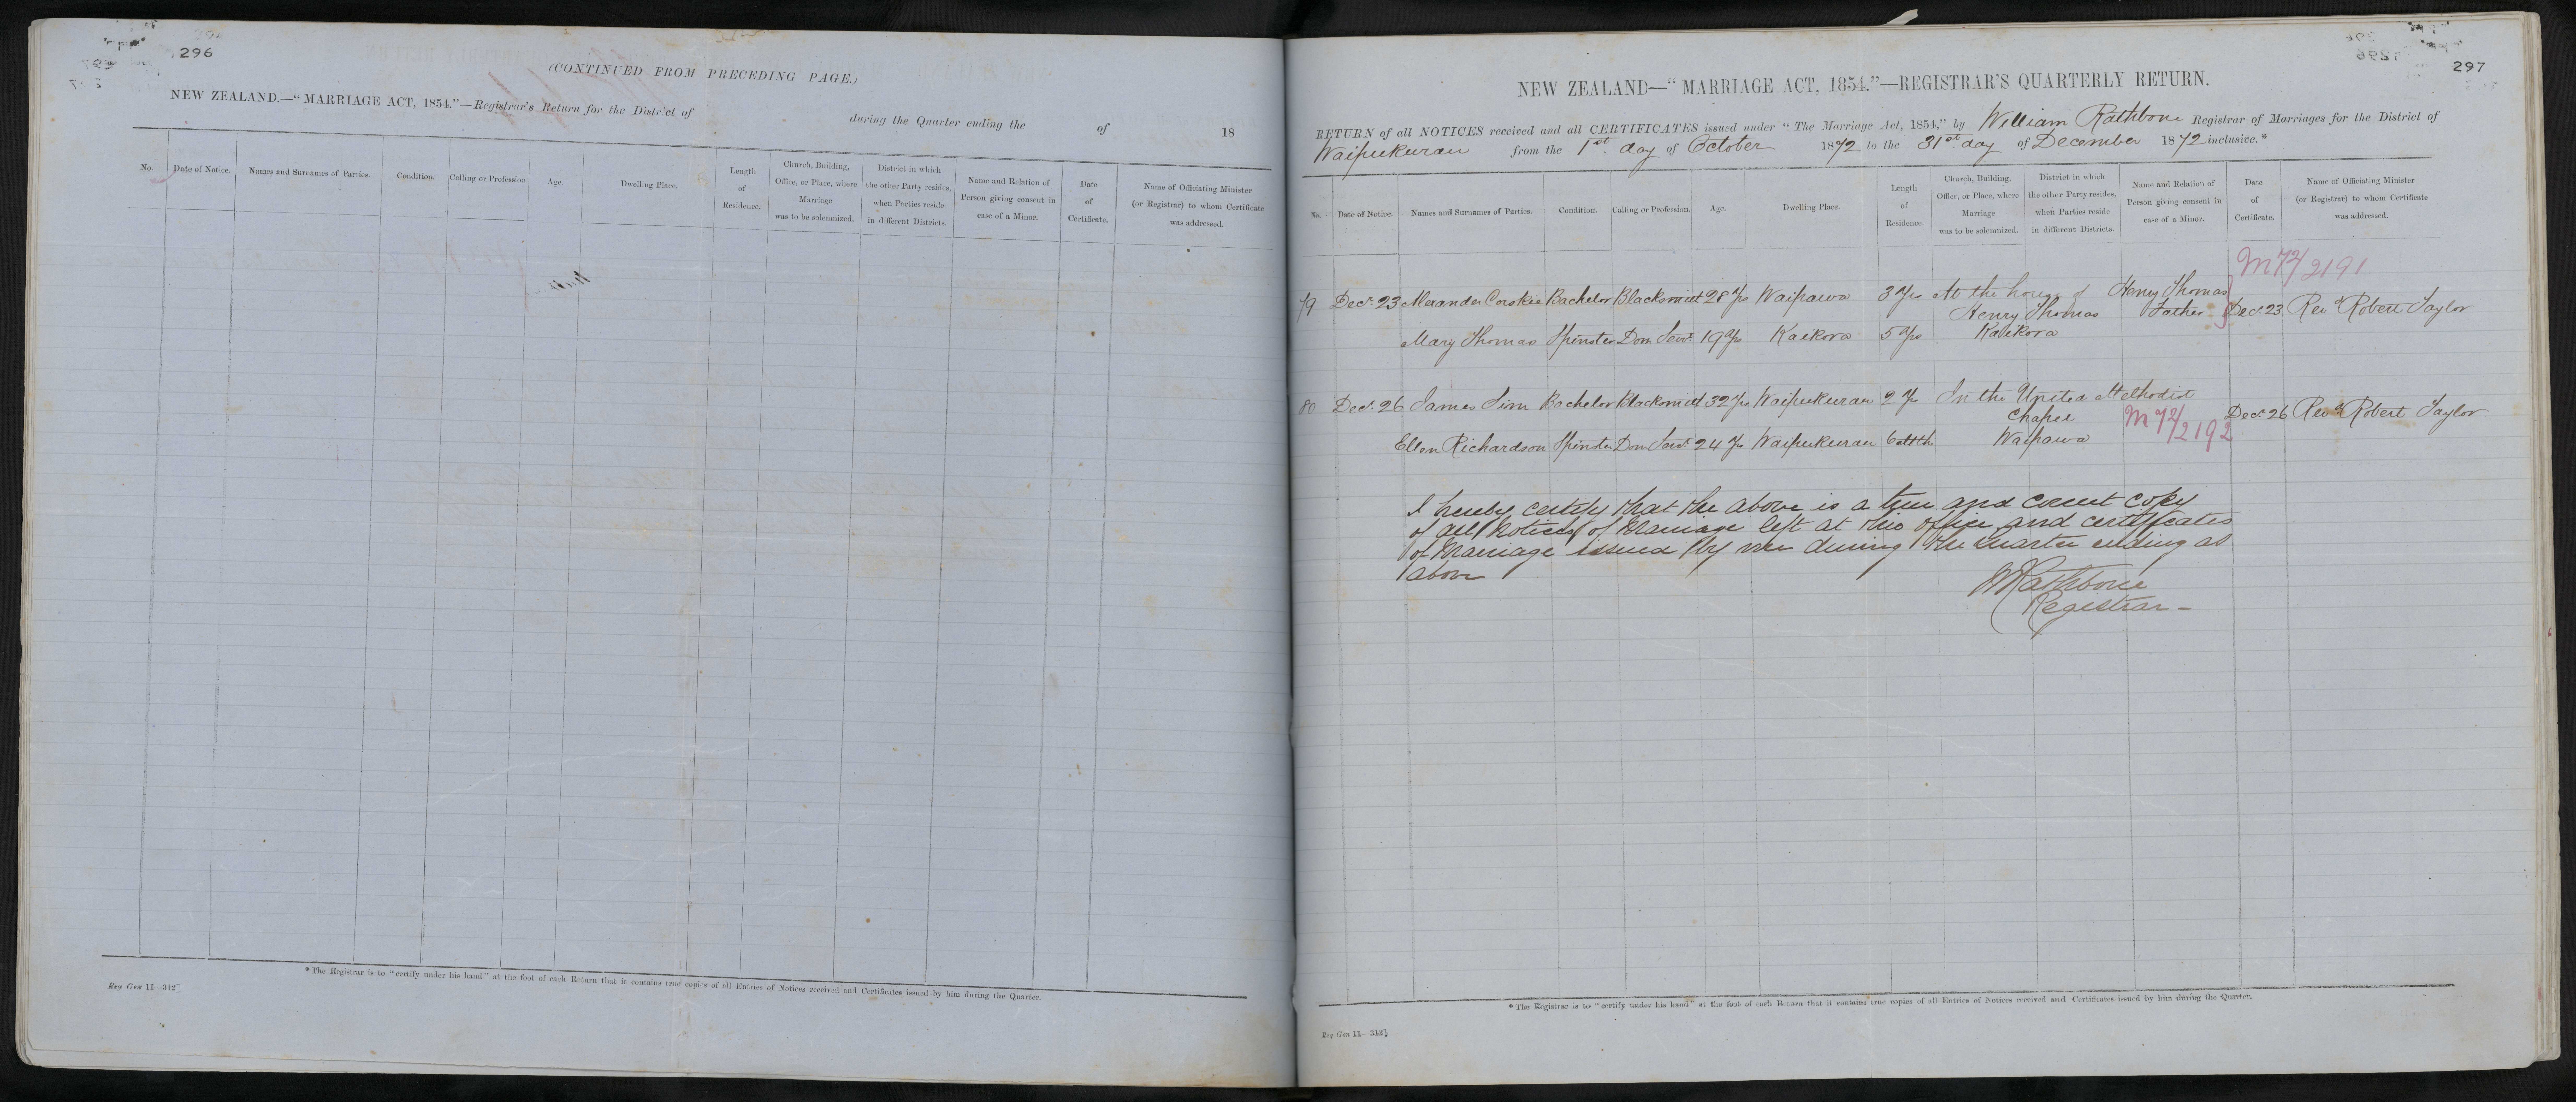 296
(CONTINUED FROM PRECEDING PAGE.)
NEW ZEALAND.—"MARRIAGE ACT, 1854."—Registrar's Return for the District of during the Quarter ending the of 18
No. Date of Notice. Names and Surnames of Parties. Condition. Calling or Profession. Age. Dwelling Place. Length of Residence. Church, Building, Office, or Place, where Marriage was to be solemnized. District in which the other Party resides, when Parties reside in different Districts. Name and Relation of Person giving consent in case of a Minor. Date of Certificate. Name of Officiating Minister (or Registrar) to whom Certificate was addressed.
*The Registrar is to "certify under his hand" at the foot of each Return that it contains true copies of all Entries of Notices received and Certificates issued by him during the Quarter.
Reg Gen 11—312]
297
NEW ZEALAND—"MARRIAGE ACT, 1854."—REGISTRAR'S QUARTERLY RETURN.
RETURN of all NOTICES received and all CERTIFICATES issued under "The Marriage Act, 1854," by William Rathbone Registrar of Marriages for the District of
Waipukurau from the 1st day of October 1872 to the 31st day of December 1872 inclusive.*
No. Date of Notice. Names and Surnames of Parties. Condition. Calling or Profession. Age. Dwelling Place. Length of Residence. Church, Building, Office, or Place, where Marriage was to be solemnized. District in which the other Party resides, when Parties reside in different Districts. Name and Relation of Person giving consent in case of a Minor. Date of Certificate. Name of Officiating Minister (or Registrar) to whom Certificate was addressed.
M72/2191
79 Decr 23 Alexander Corskie Bachelor Blacksmith 28 Yrs Waipawa 3 Yrs At the house of Henry Thomas
Henry Thomas Father Decr 23 Revd Robert Taylor
Mary Thomas Spinster Dom Servt 19 Yrs Kaikora 5 Yrs Kaikora
80 Decr 26 James Sim Bachelor Blacksmith 32 Yrs Waipukurau 2 Yrs In the United Methodist
Chapel M72/2192 Decr 26 Revd Robert Taylor
Ellen Richardson Spinster Dom Servt 24 Yrs Waipukurau 6 Mth Waipawa
I hereby certify that the above is a true and correct copy
of all Notices of Marriage left at this office and certificates
of Marriage issued by me during the quarter ending as
above
WRathbone
Registrar-
*The Registrar is to "certify under his hand" at the foot of each Return that it contains true copies of all Entries of Notices received and Certificates issued by him during the Quarter.
Reg Gen 11—312]